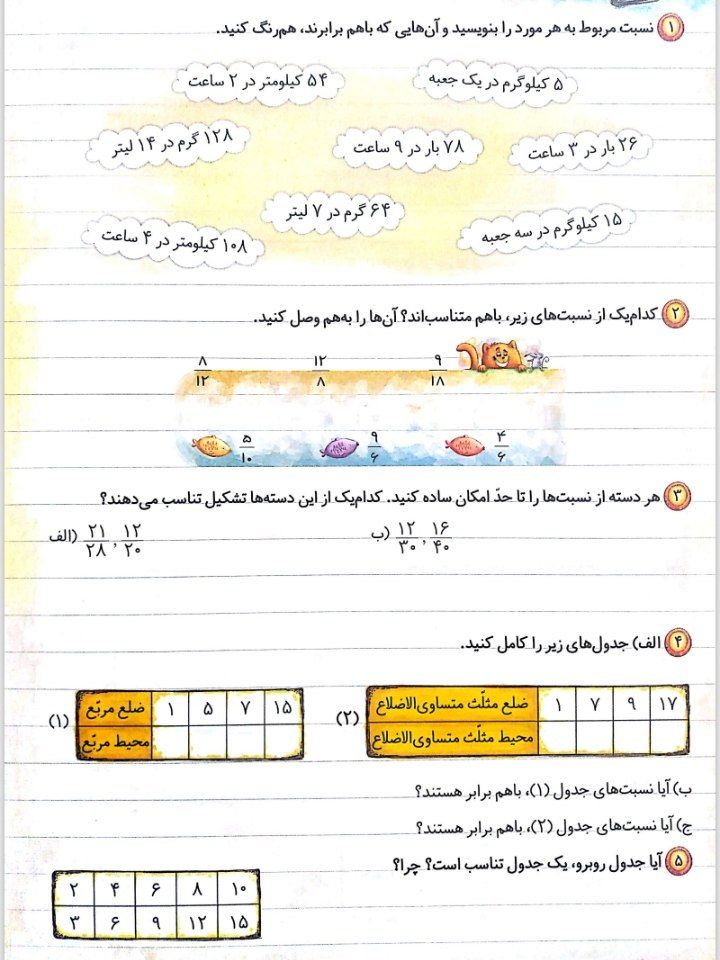 ۱ نسبت مربوط به هر مورد را بنویسید و آن‌هایی که باهم برابرند، هم‌رنگ کنید.
۵ کیلوگرم در یک جعبه
۵۴ کیلومتر در ۲ ساعت
۲۶ بار در ۳ ساعت
۷۸ بار در ۹ ساعت
۱۲۸ گرم در ۱۴ لیتر
۶۴ گرم در ۷ لیتر
۱۵ کیلوگرم در سه جعبه
۱۰۸ کیلومتر در ۴ ساعت
۲ کدام‌یک از نسبت‌های زیر، باهم متناسب‌اند؟ آن‌ها را به‌هم وصل کنید.
۸/۱۲ ۱۲/۸ ۹/۱۸
۵/۱۰ ۹/۶ ۴/۶
۳ هر دسته از نسبت‌ها را تا حدّ امکان ساده کنید. کدام‌یک از این دسته‌ها تشکیل تناسب می‌دهند؟
الف) ۲۱/۲۸ , ۱۲/۲۰
ب) ۱۲/۳۰ , ۱۶/۴۰
۴ الف) جدول‌های زیر را کامل کنید.
(۱)
ضلع مربّع ۱ ۵ ۷ ۱۵
محیط مربّع
(۲)
ضلع مثلّث متساوی‌الاضلاع ۱ ۷ ۹ ۱۷
محیط مثلّث متساوی‌الاضلاع
ب) آیا نسبت‌های جدول (۱)، باهم برابر هستند؟
ج) آیا نسبت‌های جدول (۲)، باهم برابر هستند؟
۵ آیا جدول روبرو، یک جدول تناسب است؟ چرا؟
۲ ۴ ۶ ۸ ۱۰
۳ ۶ ۹ ۱۲ ۱۵